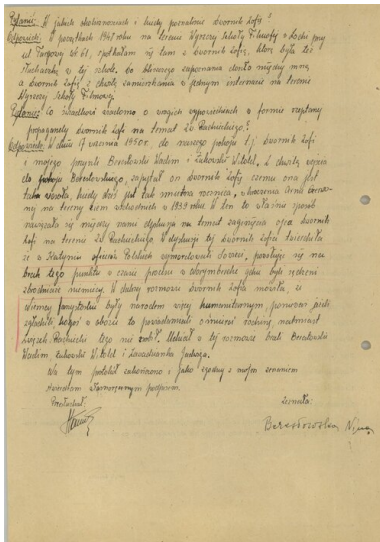 Pytanie: W jakich okolicznościach i kiedy poznaliście Dwornik Zofię?
Odpowiedź: W początkach 1947 roku na terenie Wyższej Szkoły Filmowej w Łodzi przy
ul. Targowej Nr. 61, spotkałam się tam z Dwornik Zofią, która była też
słuchaczką w tej szkole. Do bliższego zapoznania doszło między mną
a Dwornik Zofią z chwilą zamieszkania w jednym internacie na terenie
Wyższej Szkoły Filmowej.
Pytanie: Co świadkowi wiadomo o wrogich wypowiedziach w formie szeptanej
propagandy Dwornik Zofii na temat Zw. Radzieckiego?
Odpowiedź: W dniu 17 września 1950 r. do naszego pokoju t.j. Dwornik Zofii
i mojego przyszli Berestowski Wadim i Żukowski Witold, z chwilą wejścia
do pokoju Berestowskiego, zapytał on Dwornik Zofię czemu ona jest
taka wesoła, kiedy dziś jest tak smutna rocznica, wkroczenia Armii Czerwo-
nej na tereny ziem wschodnich w 1939 roku. W ten to właśnie sposób
nawiązała się między nami dyskusja na temat zaginięcia ojca Dwornik
Zofii na terenie Zw. Radzieckiego. W dyskusji tej Dwornik Zofia twierdziła
że w Katyniu oficerów Polskich wymordowali Sowieci, powołując się na
brak tego punktu w czasie procesu w Norymberdze gdzie byli sądzeni
zbrodniarze niemieccy. W dalszej rozmowie Dwornik Zofia mówiła, że
Niemcy faszystowskie były narodem więcej humanitarnym, ponieważ jeśli
zgładzili kogoś w obozie to powiadamiali o śmierci rodzinę, natomiast
Związek Radziecki tego nie robił. Udział w tej rozmowie brali Berestowski
Wadim, Żukowski Witold i
Na tym protokół zakończono i jako zgodny z moim zeznaniem
stwierdzam własnoręcznym podpisem.
Przesłuchał: Zeznała:
Berestowska